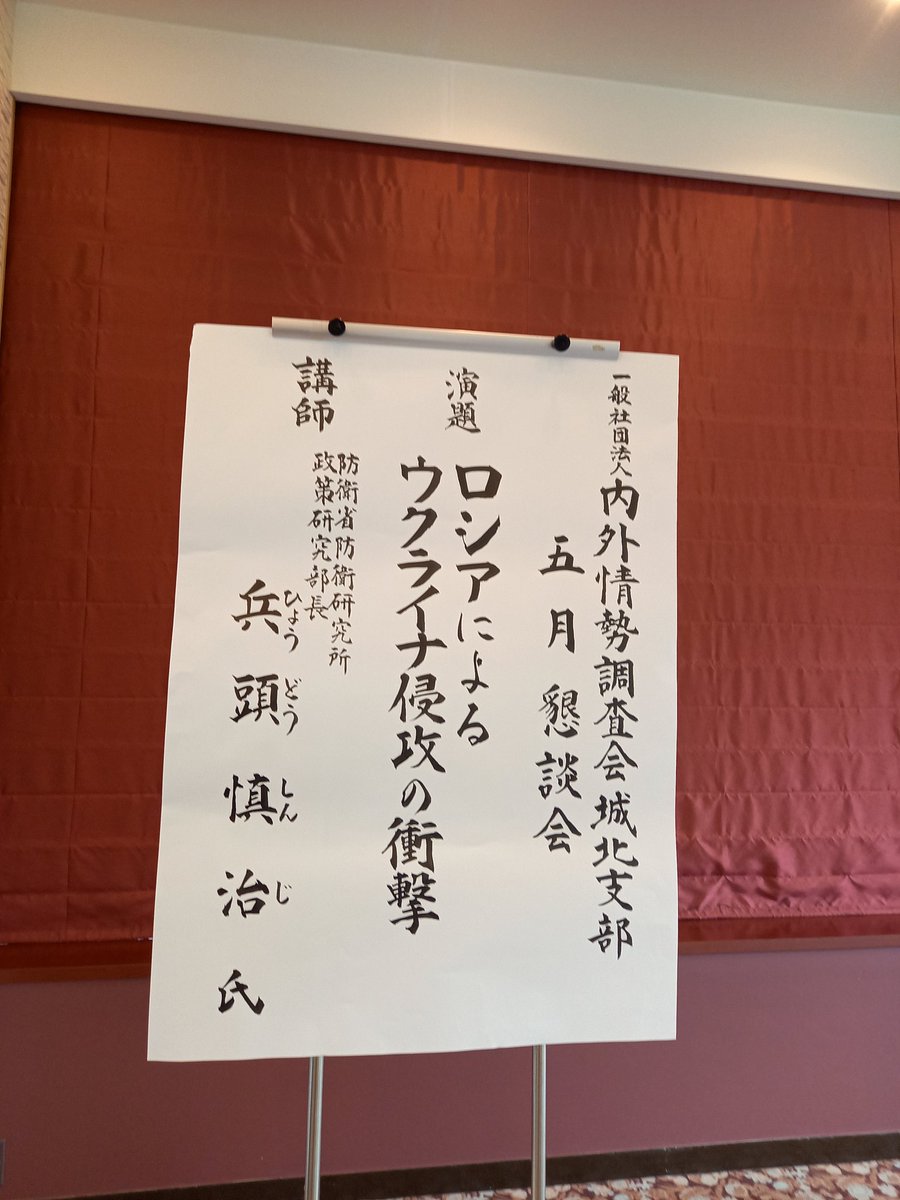 一般社団法人内外情勢調査会城北支部
五月懇談会
演題
ロシアによる
ウクライナ侵攻の衝撃
講師
防衛省防衛研究所
政策研究部長
兵頭慎治氏
ひょうどうしんじ